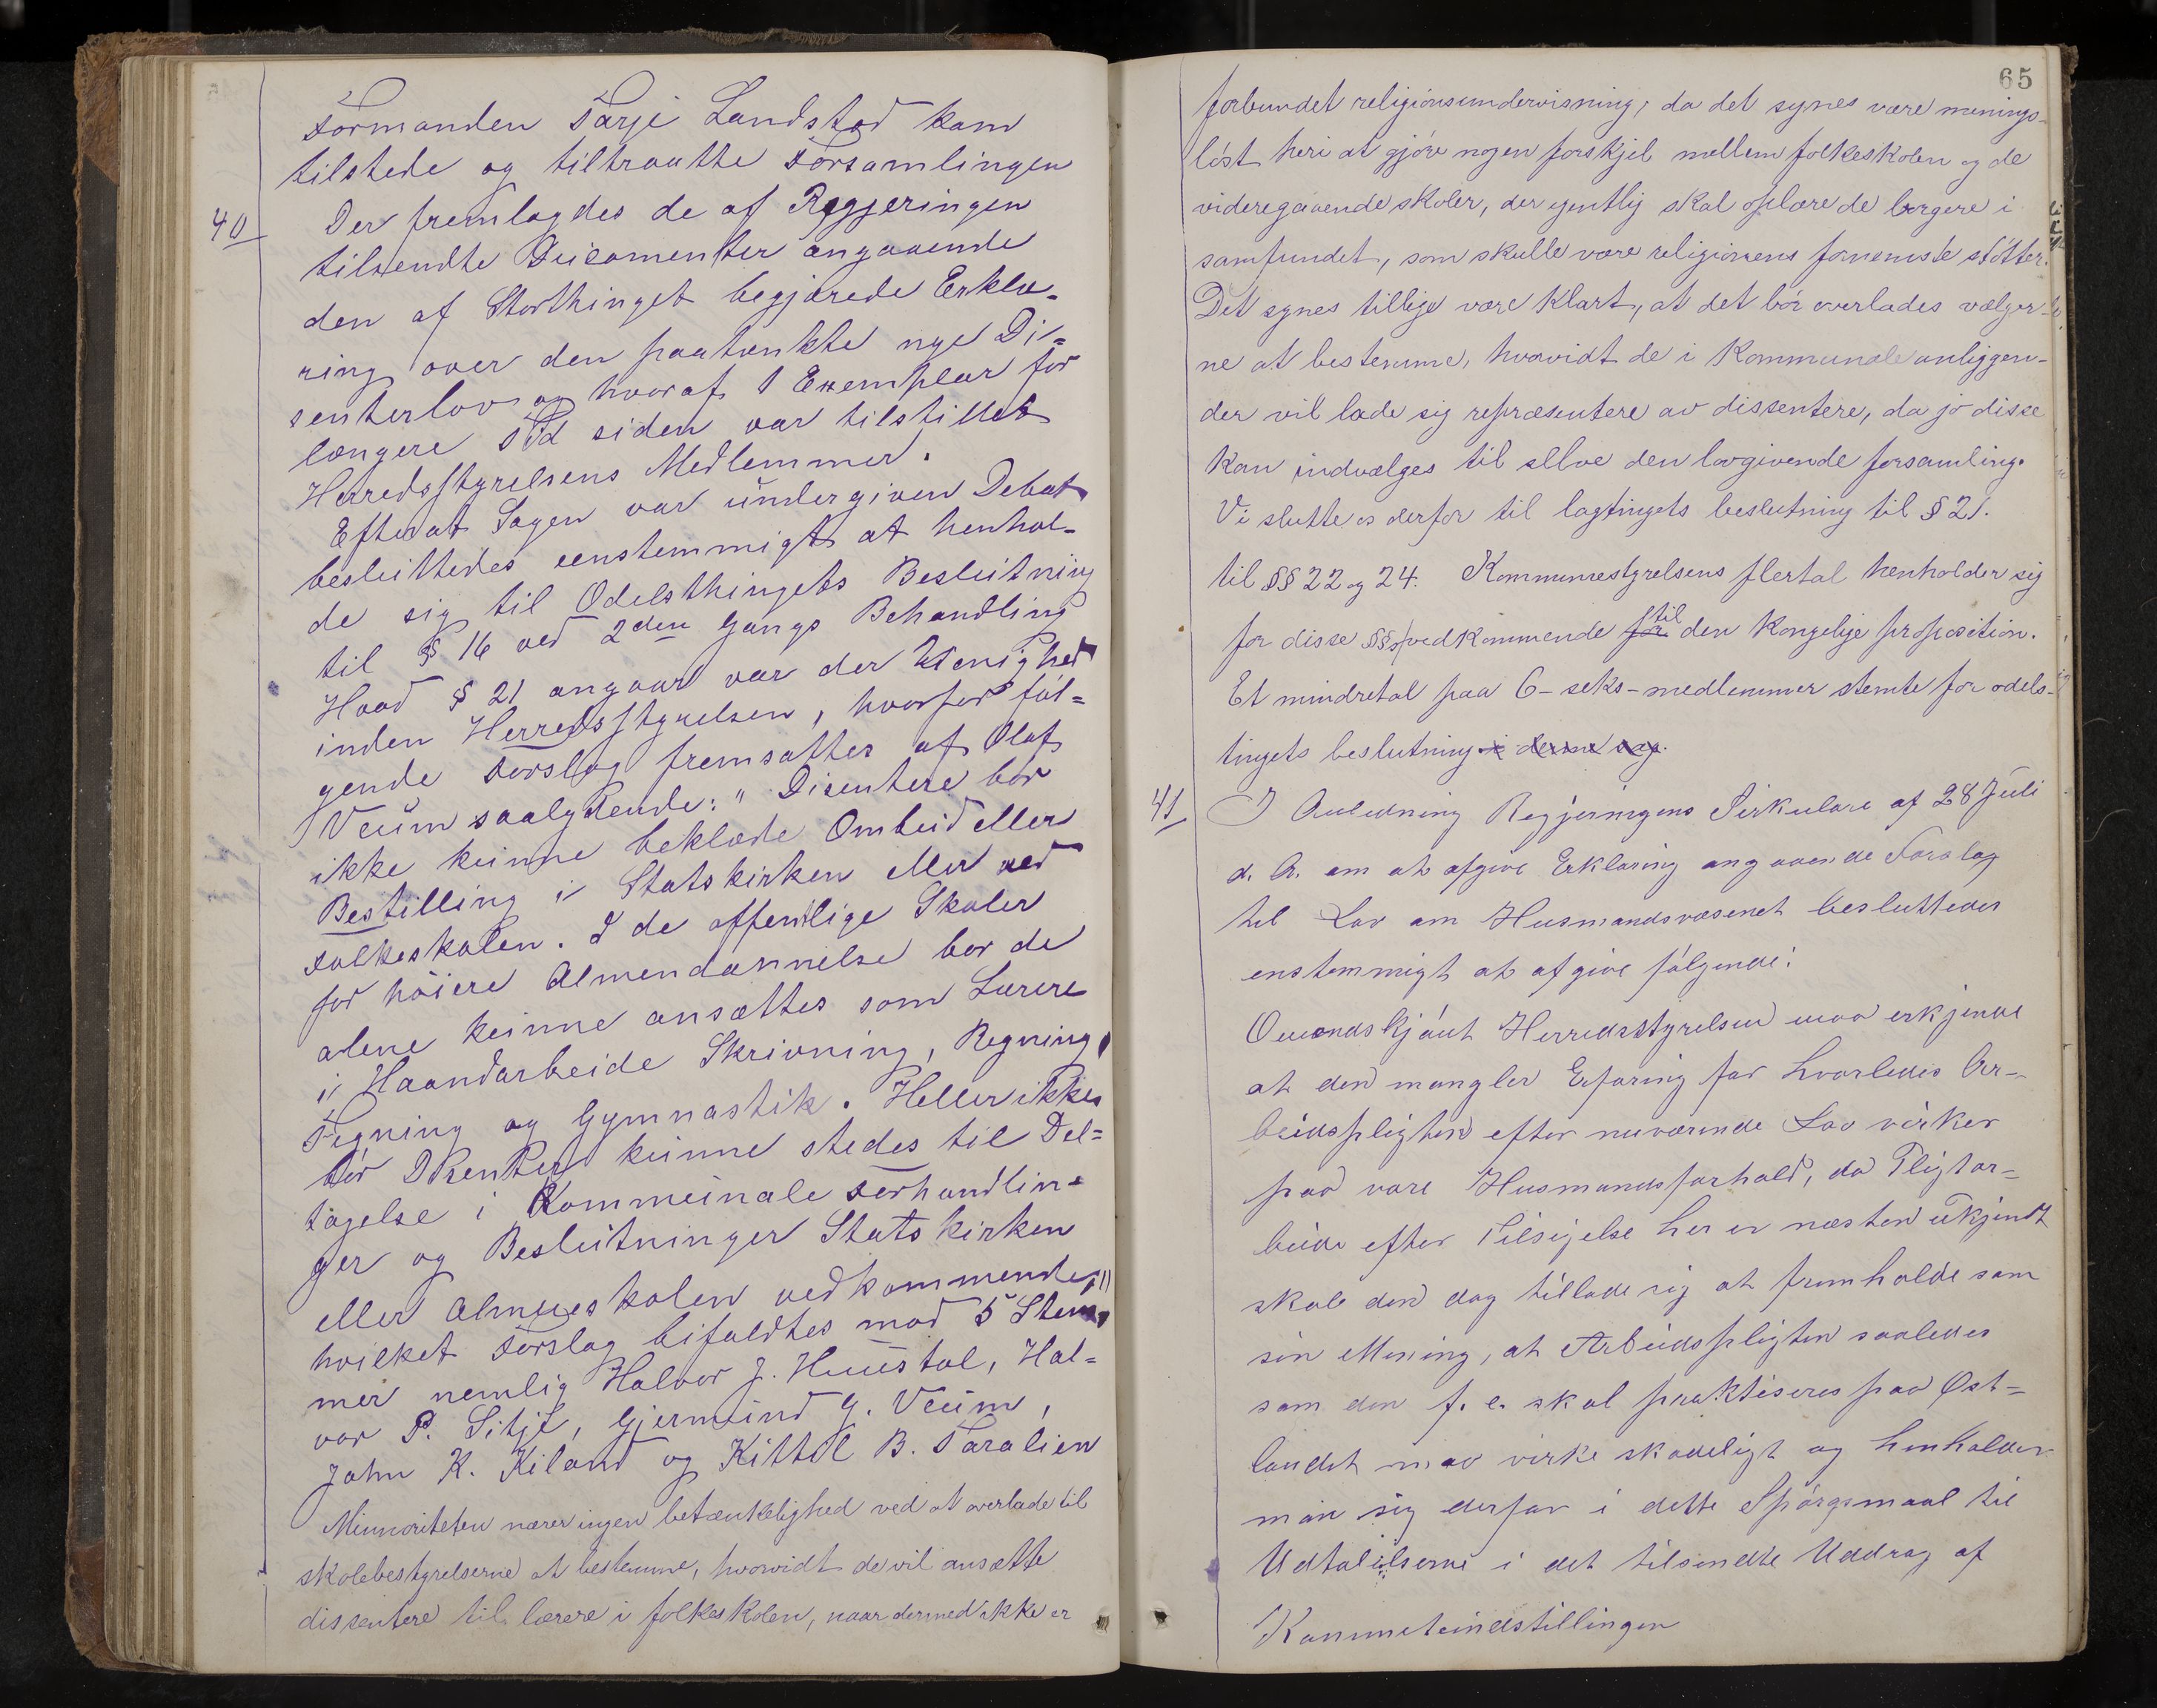 Formanden Tarje Landstad kom
tilstede og tiltraatte Forsamlingen
40 Der fremlagdes de af Regjeringen
tilsendte Ducomenter angaaende
den af Storthinget begjærede Erklæ-
ring over den paatænkte nye Di-
senterlov og hvoraf 1 Exemplar for
længere Tid siden var tilstillet
Herredsstyrelsens Medlemmer.
Efterat Sagen var undergiven Debat
besluttedes eenstemmigt at henhol-
de sig til Odelsthingets Beslutning
til § 16 ved 2den Gangs Behandling
Hvad § 21 angaar var der Uenighed
inden Herredsstyrelsen, hvorfor föl-
gende Forslag fremsattes af Olaf
Veum saalydende: "Disentere bör
ikke kunne beklæde Ombud eller
Bestilling i Statskirken eller ved
Folkeskolen. I de offentlige Skoler
for höiere Almendannelse bör de
alene kunne ansættes som Lærere
i Haandarbeide Skrivning, Regning,
Tegning og Gymnastik. Heller ikke
bör Disenter kunne stedes til Del-
tagelse i Kommunale Forhandlin-
ger og Beslutninger Statskirken
eller Almueskolen vedkommende,"
hvilket Forslag bifaldtes mod 5 Stem-
mer nemlig Halvor J. Huustal, Hal-
vor P. Sitje, Gjermund G. Veum,
John K. Kiland og Kittil B. Taralien
Minnoriteten nærer ingen betænkelighed ved at overlade til
skolebestyrelserne at bestemme, hvorvidt de vil ansætte
dissentere til lærere i folkeskolen, naar dermed ikke er
65
forbundet religionsundervisning, da det synes være menings-
löst heri at gjöre nogen forskjel mellem folkeskolen og de
videregaaende skoler, der egentlig skal oplære de borgere i
samfundet, som skulle være religionens fornemste stötter.
Det synes tillige være klart, at det bör overlades vælger-
ne at bestemme, hvorvidt de i kommunale anliggen-
der vil lade sig repræsentere av dissentere, da jo disse
kan indvælges til selve den lovgivende forsamling.
Vi slutte os derfor til lagtingets beslutning til § 21.
til §§ 22 og 24. Kommunestyrelsens flertal henholder sig
for disse §§s vedkommende for til den kongelige proposition.
Et mindretal paa 6 - seks - medlemmer stemte for odels-
tingets beslutning i denne sag.
41 I Anledning Regjeringens Sirkulære af 28 Juli
d. A. om at afgive Erklæring angaaende Forslag
til Lov om Husmandsvæsenet besluttedes
enstemmigt at afgive fölgende:
Omendskjönt Herredsstyrelsen maa erkjende
at den mangler Erfaring for hvorledes Ar-
beidspligten efter nuværende Lov virker
paa vore Husmandsforhold, da Pligtar-
beide efter Tilsigelse her er næsten ukjendt
skal den dog tillade sig at fremholde som
sin Mening, at Arbeidspligten saaledes
som den f. e. skal praktiseres paa Öst-
landet maa virke skadeligt og henholder
man sig derfor i dette Spörgsmaal til
Udtalelserne i det tilsendte Uddrag af
Kommuteindstillingen